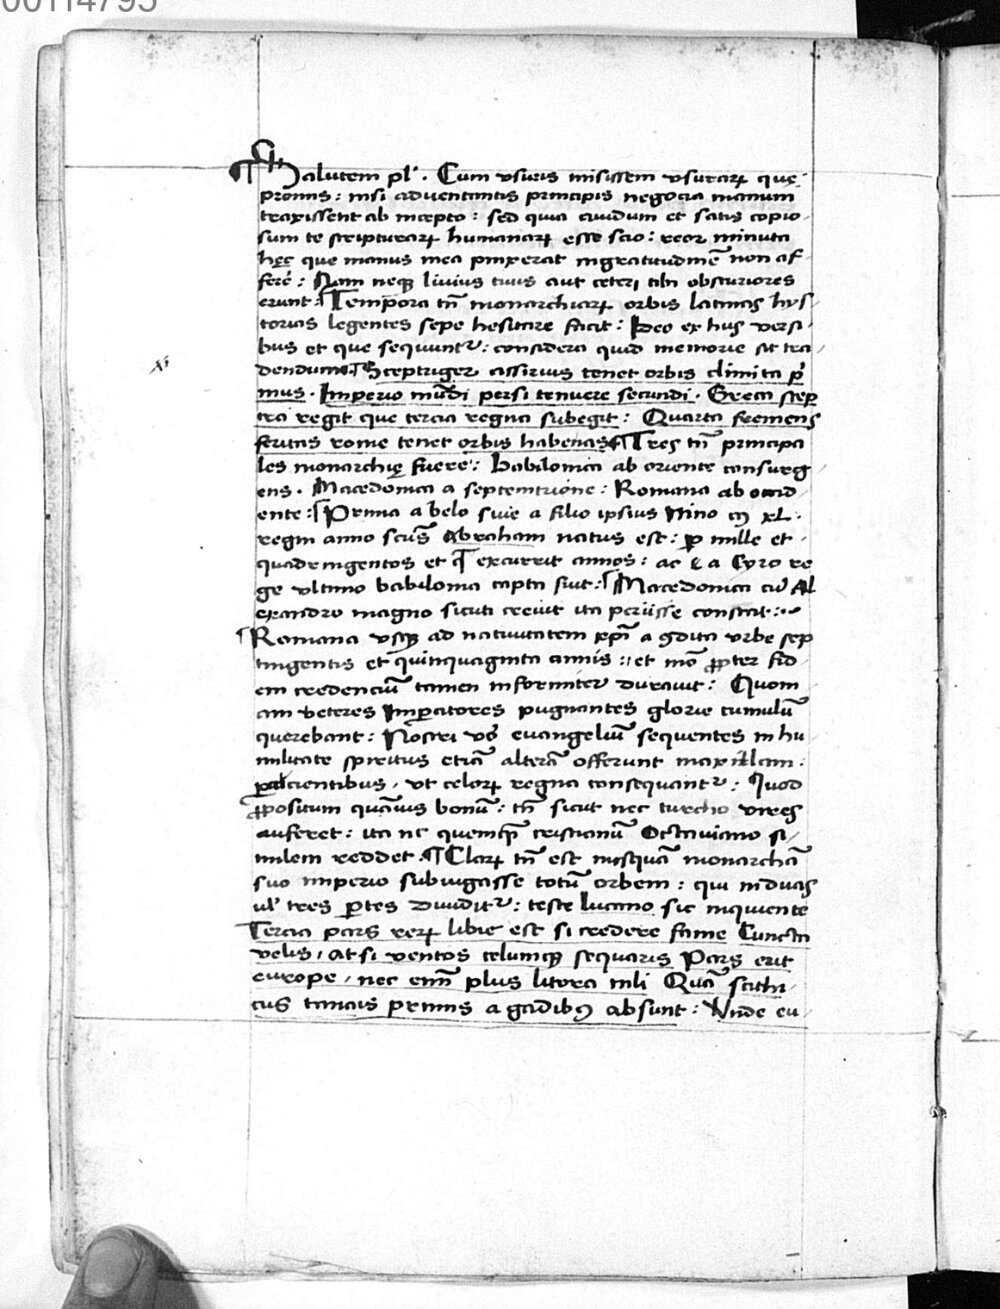 00114795
¶ Salutem pl'. Cum vsuris misissem vsurarꝝ quę
promis: nisi aduentantis principis negocia manum
traxissent ab incepto: sed quia auidum et satis copio/
sum te scripturarꝝ humanarꝝ esse scio: reor minuta
hęc que manus mea pinxerat ingratitudinē non af/
ferē: Nam neqꝫ liuius tuus aut ceteri tibi obscuriores
erunt: Tempora tn̄ monarchiarꝝ orbis latinas hys/
torias legentes sepe hesitare facit: Ideo ex hys versi/
bus et que sequuntᷣ: considera quid memorie sit tra/
xi
dendum. ¶ Sceptriger assirius tenet orbis climita p̄/
mus. Imperio mūdi persi tenuere secundi. Greca scep
tra regit que tercia regna subegit: Quarta fremens
feritas rome tenet orbis habenas ¶ Tres tn̄ principa
les monarchię fuere: babilonica ab oriente consurg/
ens. Macedonica a septemtrione: Romana ab occid/
ente: Prima a belo siue a filio ipsius Nino cꝰ xL.
regni anno scūs Abraham natus est: ꝑ mille et
quadringentos et qͥ excurrit annos: ac a Cyro re
ge vltimo babilonia capta fuit: Macedonica cū Al
exandro magno sicuti creuit ita periisse constat:
¶ Romana vsqꝫ ad natiuitatem xpī a ꝯdita vrbe sep
tingentis et quinquaginta annis: et mō ꝓpter fid
em credenciū tamen informiter durauit: Quoni
am veteres Imꝑatores pugnantes glorie cumulū
querebant: Nostri vō euangeliū sequentes in hu
militate spiritus etiā alterā offerunt maxillam:
ꝑcucientibus. vt celorꝝ regna consequantᷣ: Quod
ꝓpositum quāuis bonū: tn̄ sicut nec turcho vires
auferet: ita nc quemqͣ cristianū Octauiano si/
milem reddet. ¶ Clarꝝ tn̄ est nusquā monarchā
suo imperio subiugasse totū orbem: qui in duas
ul' tres ꝑtes diuiditᷣ: teste lucano sic inquiente
Tercia pars rerꝝ libie est si credere fame Cuncta
velis, at si ventos celumqꝫ sequaris Pars erit
europe, nec enī plus litora nili Quā scithi/
cus tanais primis a gadibꝰ absunt: Vnde eu/